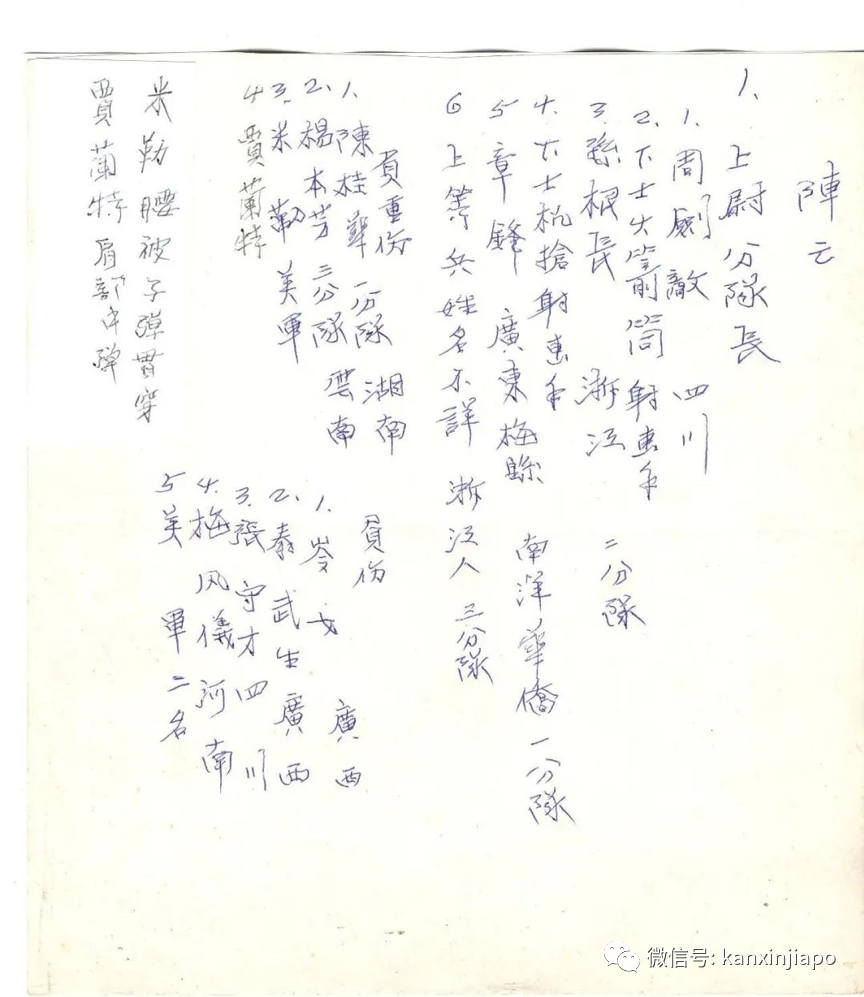 陣亡
1. 上尉分隊長
1. 周劍敵 四川
2. 下士火箭筒射擊手
3. 孫根長 浙江 二分隊
4. 下士机搶射擊手
5 章鋒 廣東梅縣 南洋華僑 一分隊
6 上等兵姓名不詳 浙江人 三分隊
負重伤
1. 陳桂華 一分隊 湖南
2. 楊本芳 三分隊 雲南
3. 米勒 美軍
4 賈蘭特
米勒腰被子弹貫穿
賈蘭特肩部中弹
負伤
1. 岑 廣西
2. 秦武生 廣西
3. 張守才 四川
4. 梅风儀 河南
5 美軍二名
微信号: kanxinjiapo